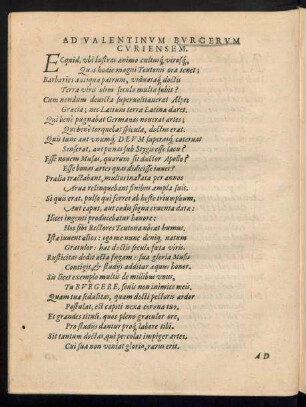 AD VALENTINVM BVRGERVM
CVRIENSEM.
ECquid, vbi lustras animo cultusq́, virosq́,
Quos hodie magni Teutonis ora tenet;
Barbaries antiqua patrum, viduataq́, doctis
Terra viris olim secula multa subit?
Cum nondum deuicta superuolitauerat Alpes
Græcia; nec Latium terra Latina daret,
Qui benè pugnabat Germanus nouerat artes;
Qui benè torquebat spicula, doctus erat.
Quis tunc aut vnumq́, DEVM superumq́, cateruas
Senserat, aut pœnas sub Stygis esse lacu?
Esse nouem Musas, quarum sit ductor Apollo?
Esse bonas artes quas didicisse iuuet?
Prælia tractabant, multos inulta per annos
Arua relinquebant finibus ampla suis.
Si quis erat, pulso qui ferret ab hoste triumphum,
Aut caput, aut cædis signa cruenta datæ;
Ilicet ingenti producebatur honore:
Hos sibi Rectores Teutona nôrat humus.
Ista iuuent alios: ego me nunc deniq, natum
Gratulor: hæc doctis secula fœta viris.
Rusticitas dedit acta fugam: sua gloria Musis
Contigit, & studijs additur æquus honor.
Sis licet exemplo multis de milibus vnus,
Tu BVRGERE, sonis non inimice meis,
Quam tua sedulitas, quam docti pectoris ardor
Postulat, est capiti nexa corona tuo,
Et grandes tituli, quos pleno gratulor ore,
Pro studijs dantur proq́, labore tibi.
Sit tantum doctas, qui percolat impiger artes,
Cui sua non veniat gloria, rarus erit.
AD